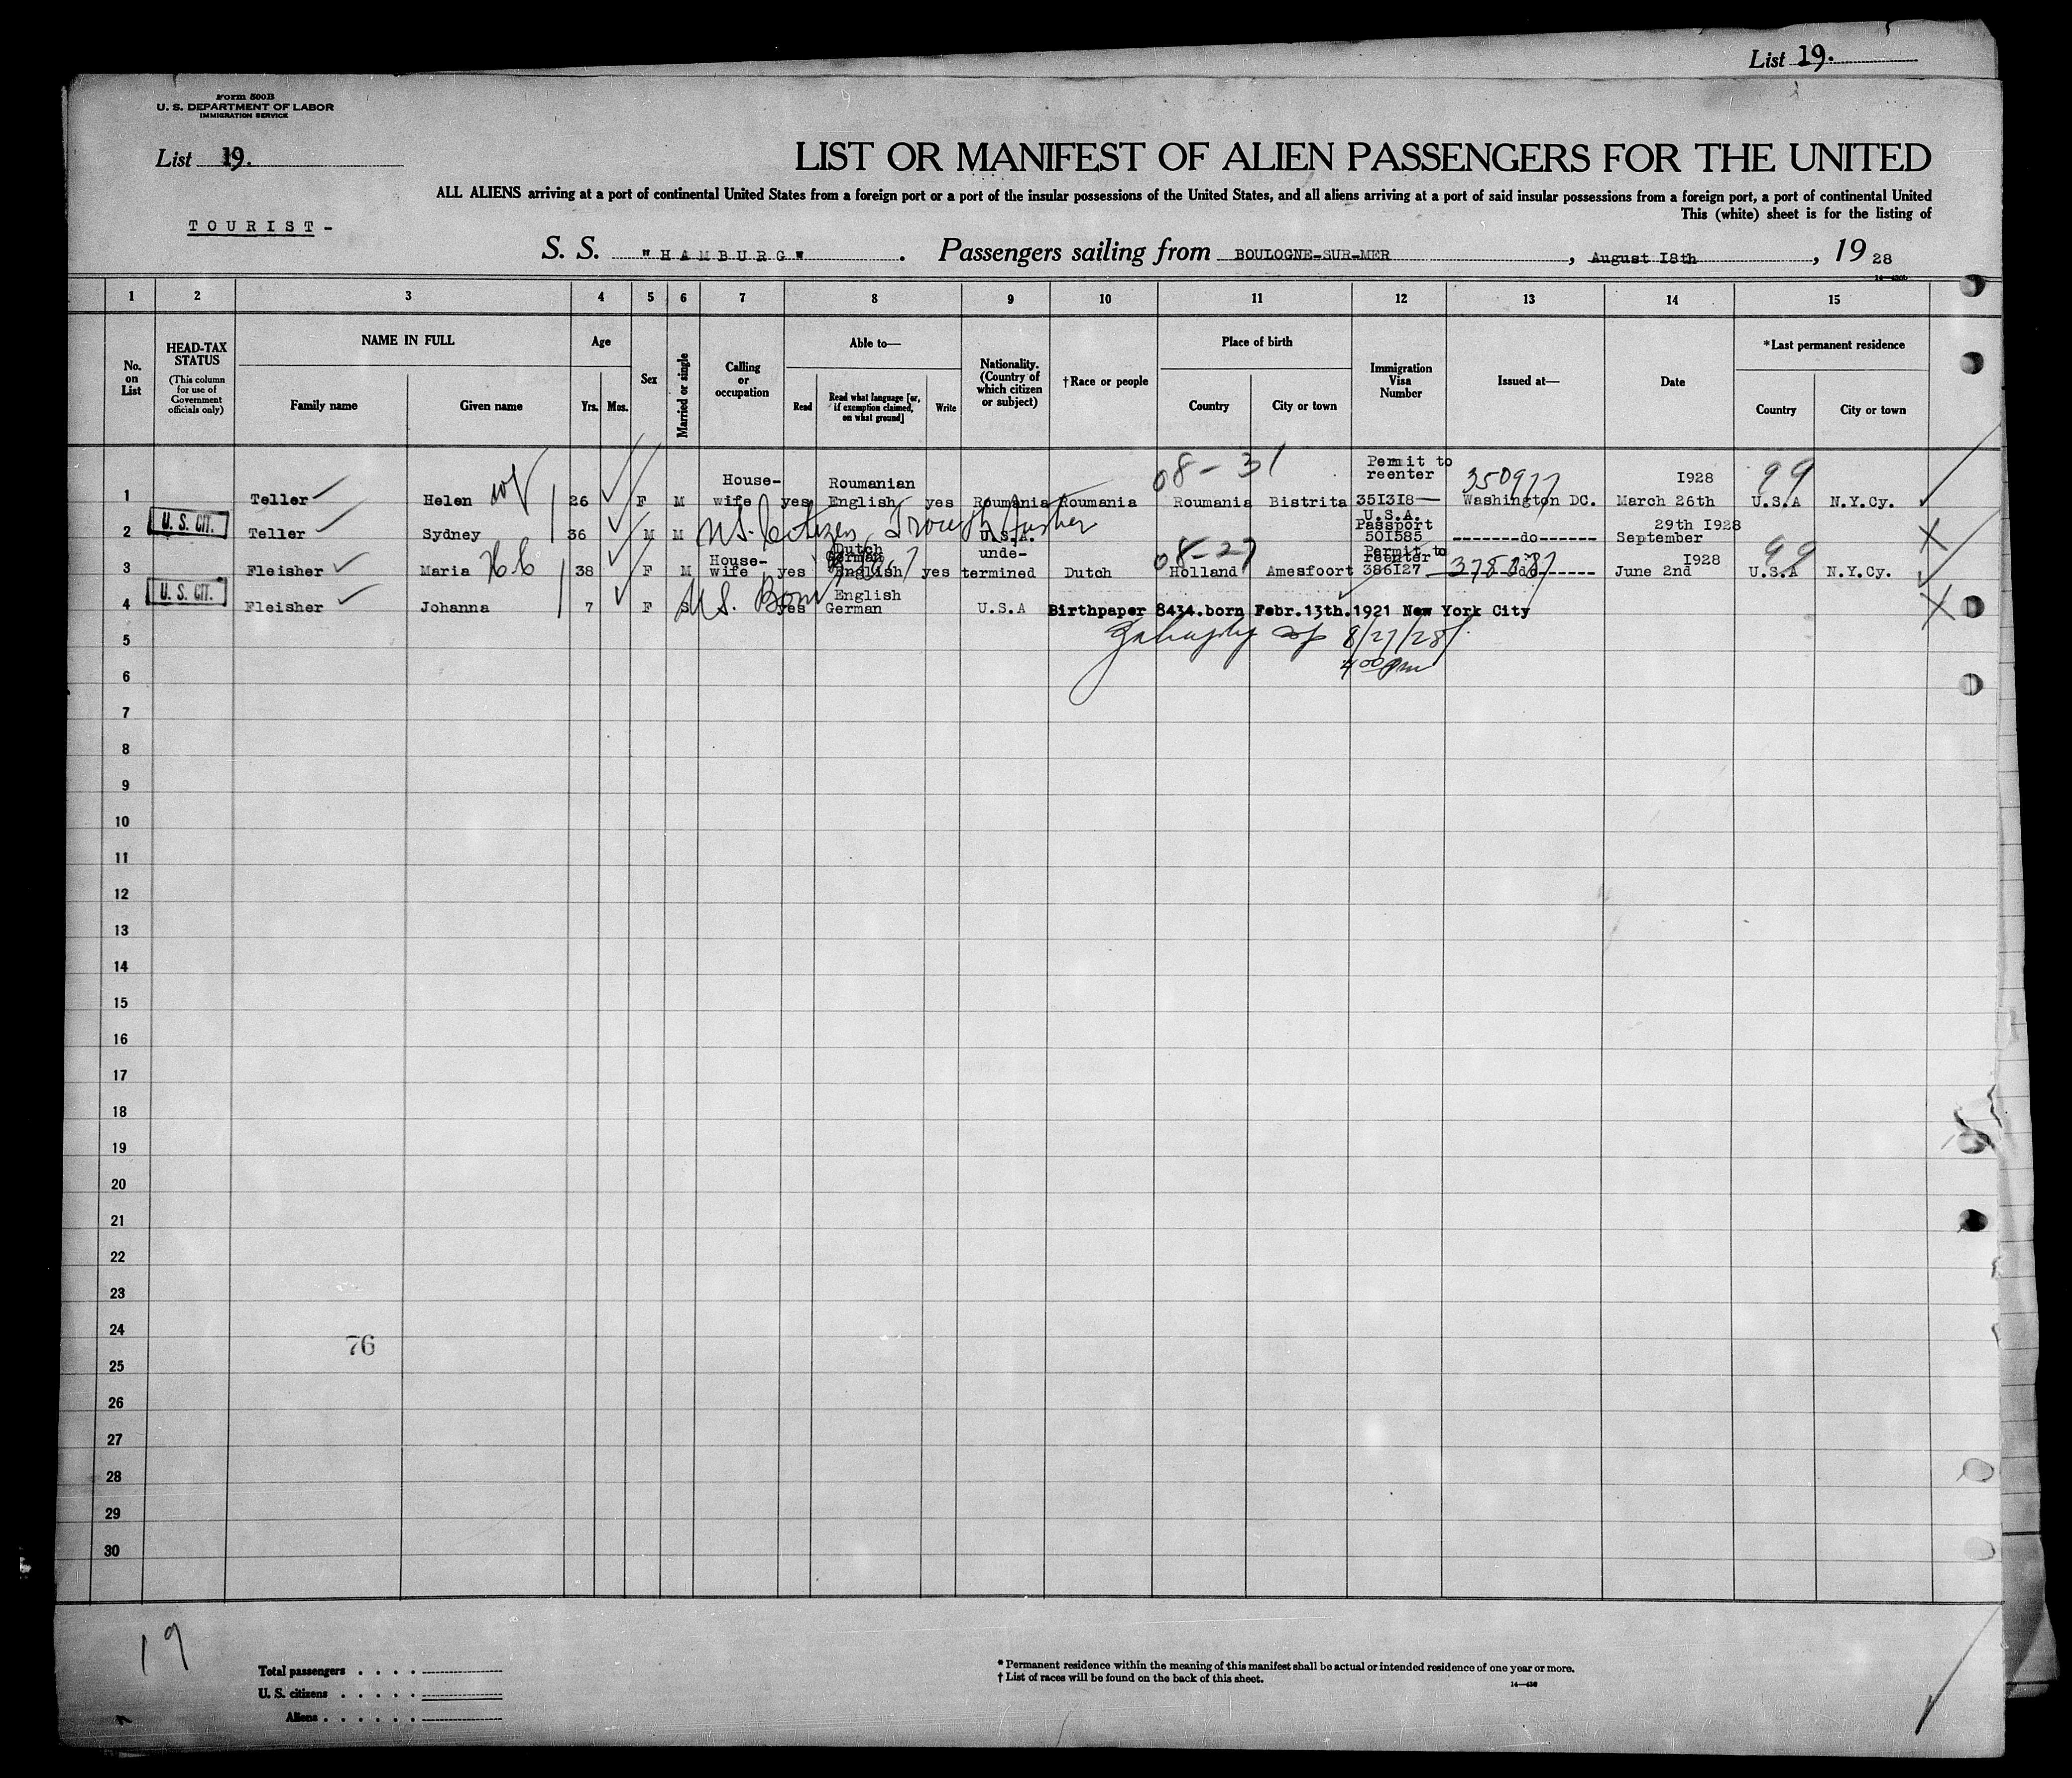 List 19.
Form 500B
U. S. DEPARTMENT OF LABOR
IMMIGRATION SERVICE
List 19.
LIST OR MANIFEST OF ALIEN PASSENGERS FOR THE UNITED
ALL ALIENS arriving at a port of continental United States from a foreign port or a port of the insular possessions of the United States, and all aliens arriving at a port of said insular possessions from a foreign port, a port of continental United
This (white) sheet is for the listing of
TOURIST-
S. S. "HAMBURG". Passengers sailing from BOULOGNE-SUR-MER, August 18th, 1928
1 2 3 4 5 6 7 8 9 10 11 12 13 14 15
No. on List
HEAD-TAX STATUS
(This column for use of Government officials only)
NAME IN FULL
Family name Given name
Age
Yrs. Mos.
Sex
Married or single
Calling or occupation
Able to—
Read Read what language [or, if exemption claimed, on what ground] Write
Nationality. (Country of which citizen or subject)
†Race or people
Place of birth
Country City or town
Immigration Visa Number
Issued at—
Date
*Last permanent residence
Country City or town
08-31 Permit to reenter 350977 1928 99
1 Teller Helen 26 F M House-wife yes Roumanian English yes Roumania Roumania Roumania Bistrita 351318— Washington DC. March 26th U.S.A N.Y.Cy.
U. S. CIT.
2 Teller Sydney 36 M M U.S. Citizen U.S.A. U.S.A. Passport 501585 -------do------ 29th 1928 September
08-27 99
3 Fleisher Maria 38 F M House-wife yes Dutch German English yes unde-termined Dutch Holland Amesfoort Permit to reenter 386127 ------do------ June 2nd 1928 U.S.A N.Y.Cy.
U. S. CIT.
4 Fleisher Johanna 7 F S U.S. Born yes English German U.S.A Birthpaper 8434.born Febr.13th.1921 New York City
8/27/28
4 00 pm
5
6
7
8
9
10
11
12
13
14
15
16
17
18
19
20
21
22
23
24
76
25
26
27
28
29
30
19
Total passengers . . . .
U. S. citizens . . . . .
Aliens . . . . . .
* Permanent residence within the meaning of this manifest shall be actual or intended residence of one year or more.
† List of races will be found on the back of this sheet.